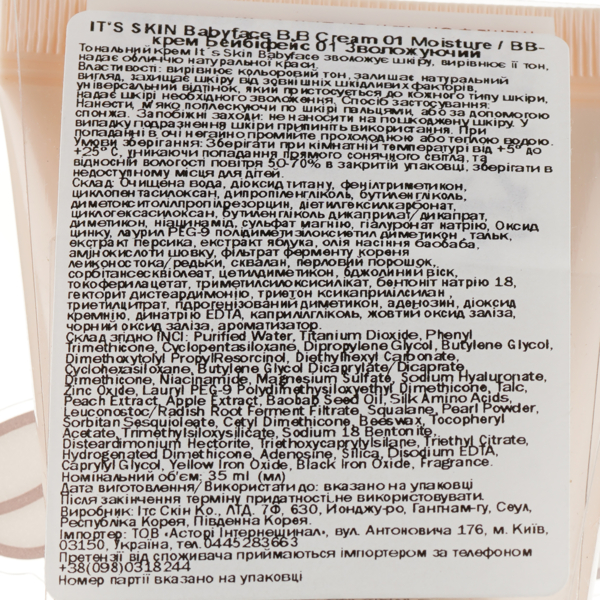 IT'S SKIN Babyface B.B Cream 01 Moisture / BB-
крем Бейбіфейс 01 Зволожуючий
Тональний крем It`s Skin Babyface зволожує шкіру, вирівнює її тон,
надає обличчю натуральної краси.
Властивості: вирівнює кольоровий тон, залишає натуральний
вигляд, захищає шкіру від зовнішніх шкідливих факторів,
універсальний відтінок, який пристосується до кожного типу шкіри,
надає шкірі необхідного зволоження. Спосіб застосування:
Нанести, м'яко поплескуючи по шкірі пальцями, або за допомогою
спонжа. Запобіжні заходи: не наносити на пошкоджену шкіру. У
випадку подразнення шкіри припиніть використання. При
попаданні в очі негайно промийте прохолодною або теплою водою.
Умови зберігання: Зберігати при кімнатній температурі від +5° до
+25° С, уникаючи попадання прямого сонячного світла, та
відносній вологості повітря 50-70% в закритій упаковці, зберігати в
недоступному місця для дітей.
Склад: Очищена вода, діоксид титану, фенілтриметикон,
циклопентасилоксан, дипропіленгліколь, бутиленгліколь,
диметокситолілпропілрезорцин, діетилгексилкарбонат,
циклогексасилоксан, бутиленгліколь дикаприлат/дикапрат,
диметикон, ніацинамід, сульфат магнію, гіалуронат натрію, Оксид
цинку, лаурил PEG-9 полідиметилсилоксиетил диметикон , тальк,
екстракт персика, екстракт яблука, олія насіння баобаба,
амінокислоти шовку, фільтрат ферменту кореня
лейконостока/редьки, сквалан, перловий порошок,
сорбітансесквіолеат, цетилдиметикон, бджолиний віск,
токоферилацетат, триметилсилоксисилікат, бентоніт натрію 18,
гекторит дистеардимонію, триетоксикаприлілсилан,
триетилцитрат, гідрогенізований диметикон, аденозин, діоксид
кремнію, динатрію EDTA, каприлілгліколь, жовтий оксид заліза,
чорний оксид заліза, ароматизатор.
Склад згідно INCI: Purified Water, Titanium Dioxide, Phenyl
Trimethicone, Cyclopentasiloxane, Dipropylene Glycol, Butylene Glycol,
Dimethoxytolyl PropylResorcinol, Diethylhexyl Carbonate,
Cyclohexasiloxane, Butylene Glycol Dicaprylate/Dicaprate,
Dimethicone, Niacinamide, Magnesium Sulfate, Sodium Hyaluronate,
Zinc Oxide, Lauryl PEG-9 Polydimethylsiloxyethyl Dimethicone, Talc,
Peach Extract, Apple Extract, Baobab Seed Oil, Silk Amino Acids,
Leuconostoc/Radish Root Ferment Filtrate, Squalane, Pearl Powder,
Sorbitan Sesquioleate, Cetyl Dimethicone, Beeswax, Tocopheryl
Acetate, Trimethylsiloxysilicate, Sodium 18 Bentonite,
Disteardimonium Hectorite, Triethoxycaprylylsilane, Triethyl Citrate,
Hydrogenated Dimethicone, Adenosine, Silica, Disodium EDTA,
Caprylyl Glycol, Yellow Iron Oxide, Black Iron Oxide, Fragrance.
Номінальний об'єм: 35 ml (мл)
Дата виготовлення/Використати до: вказано на упаковці
Після закінчення терміну придатності не використовувати.
Виробник: Ітс Скін Ко., ЛТД. 7Ф, 630, Йонджу-ро, Гангнам-гу, Сеул,
Республіка Корея, Південна Корея.
Імпортер: ТОВ «Асторі Інтернешинал», вул. Антоновича 176, м. Київ,
03150, Україна, тел.0445283663
Претензії від споживача приймаються імпортером за телефоном
+38(098)0318244
Номер партії вказано на упаковці